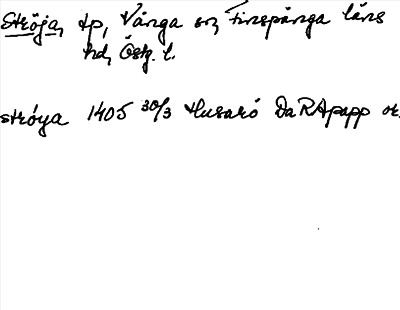 Ströja, tp, Vånga sn, Finspånga läns
hd, Östg. l.
ströya 1405 30/3 Husarö DaRApapp or.